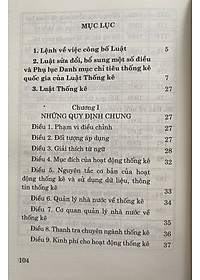 MỤC LỤC
1. Lệnh về việc công bố Luật 5
2. Luật sửa đổi, bổ sung một số điều
và Phụ lục Danh mục chỉ tiêu thống kê
quốc gia của Luật Thống kê 7
3. Luật Thống kê 27
Chương I
NHỮNG QUY ĐỊNH CHUNG 27
Điều 1. Phạm vi điều chỉnh 27
Điều 2. Đối tượng áp dụng 27
Điều 3. Giải thích từ ngữ 28
Điều 4. Mục đích của hoạt động thống kê 32
Điều 5. Nguyên tắc cơ bản của hoạt
động thống kê và sử dụng dữ liệu, thông
tin thống kê 33
Điều 6. Quản lý nhà nước về thống kê 34
Điều 7. Cơ quan quản lý nhà nước về
thống kê 35
Điều 8. Thanh tra chuyên ngành thống kê 36
Điều 9. Kinh phí cho hoạt động thống kê 37
104